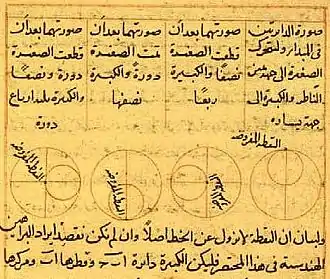 صورة الدائرتين
فى المبدأ ولتتحرك
الصغيرة الى جهة يمين
الناظر والكبيرة الى
جهة يساره
صورتهما بعد ان
قطعت الصغيرة
نصفا والكبيرة
ربعا
صورتهما بعد ان
تمت الصغيرة
دورة والكبيرة
نصفها
صورتهما بعد ان
قطعت الصغيرة
دورة ونصفا
والكبيرة ثلثة ارباع
دورة
النقطة المفروضة
النقطة المفروضة
النقطة المفروضة
ولبيان ان النقطة لا تزول عن الخط اصلا وان لم يكن نقصد ايراد البراهين
الهندسية فى هذا المختصر فليكن الكبيرة دائرة ا ب وقطرها ا ب ومركزها